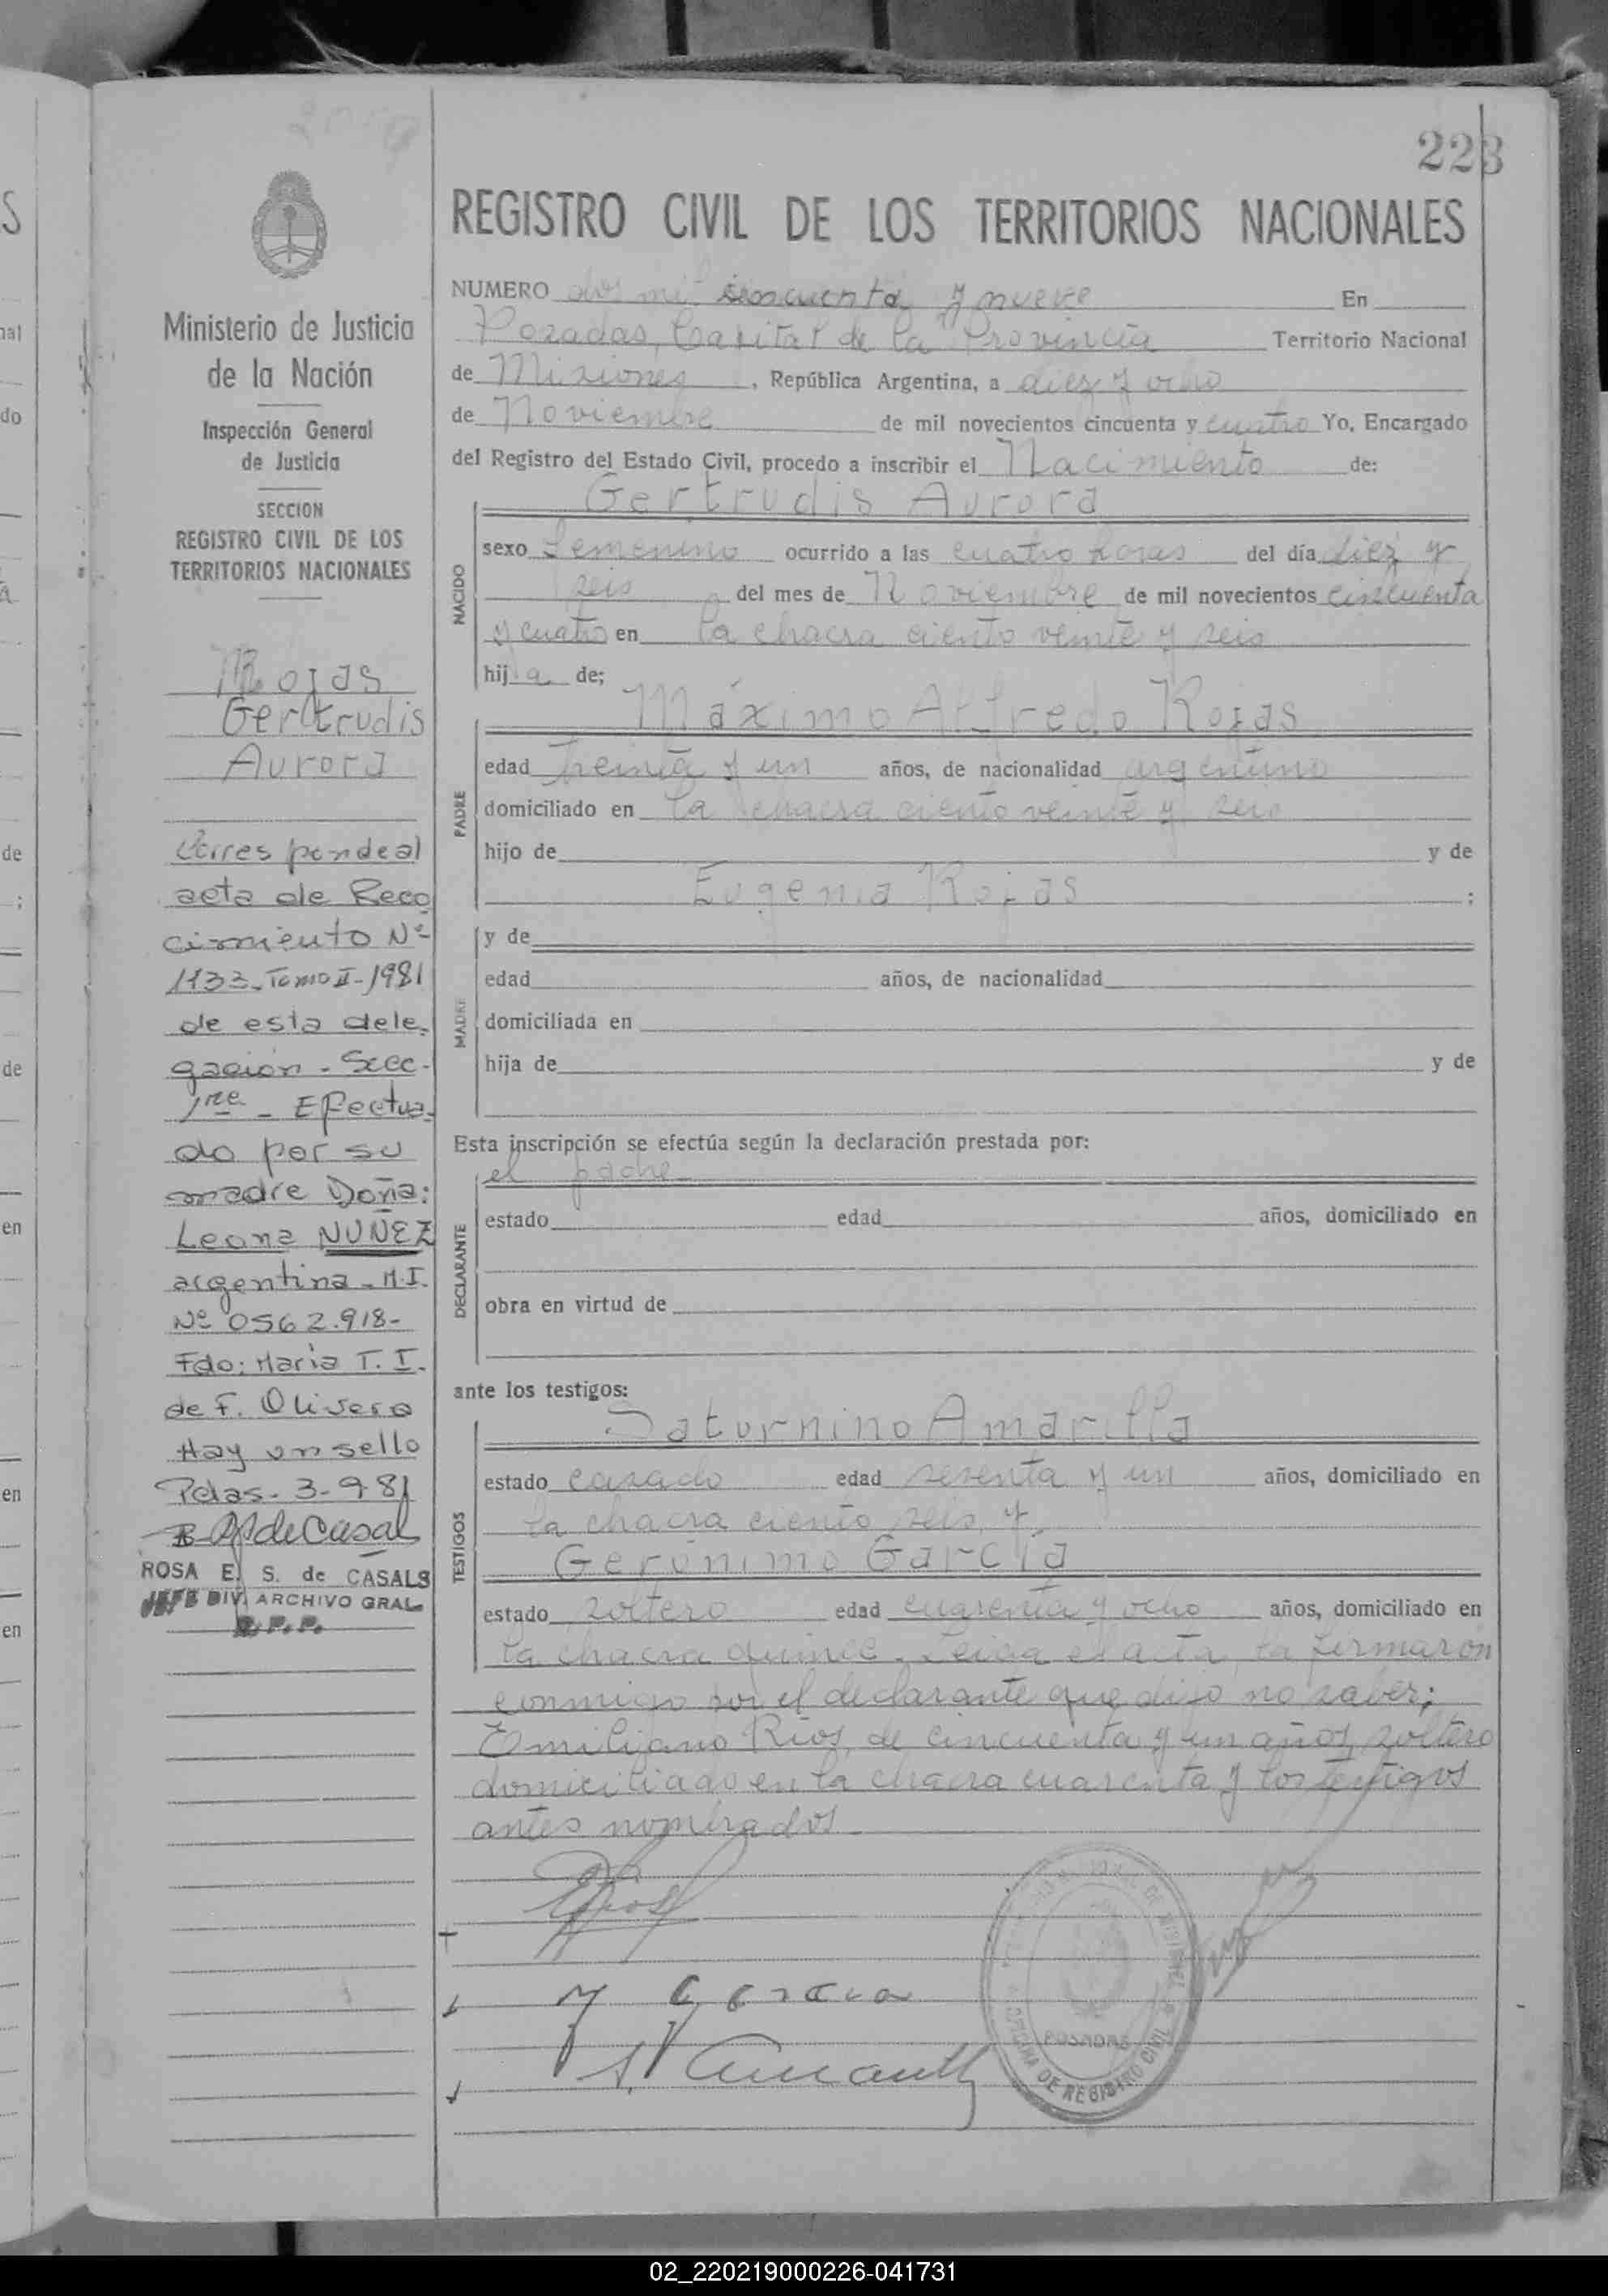 2059
223
REGISTRO CIVIL DE LOS TERRITORIOS NACIONALES
Ministerio de Justicia
de la Nación
Inspección General
de Justicia
SECCION
REGISTRO CIVIL DE LOS
TERRITORIOS NACIONALES
Rojas
Gertrudis
Aurora
Corresponde al
acta de Reco
cimiento Nº
1133-Tomo II-1981
de esta dele-
gación - Secc-
1ra - Efectua-
do por su
madre Doña:
Leona NUÑEZ
argentina - M.I.
Nº 0562.918-
Fdo: Maria T. I.
de F. Olivera
Hay un sello
Pdas- 3-9-81
ROSA E. S. de CASALS
JEFE DIV. ARCHIVO GRAL.
R. P. P.
NUMERO dos mil sincuenta y nueve En
Posadas, Capital de la Provincia Territorio Nacional
de Misiones, República Argentina, a diez y ocho
de Noviembre de mil novecientos cincuenta y cuatro Yo, Encargado
del Registro del Estado Civil, procedo a inscribir el Nacimiento de:
NACIDO
Gertrudis Aurora
sexo femenino ocurrido a las cuatro horas del día diez y
seis del mes de Noviembre de mil novecientos cincuenta
y cuatro en la chacra ciento veinte y seis
hija de;
PADRE
Máximo Alfredo Rojas
edad treinta y un años, de nacionalidad argentino
domiciliado en la chacra ciento veinte y seis
hijo de y de
Eugenia Rojas ;
MADRE
y de
edad años, de nacionalidad
domiciliada en
hija de y de
Esta inscripción se efectúa según la declaración prestada por:
DECLARANTE
el padre
estado edad años, domiciliado en
obra en virtud de
ante los testigos:
TESTIGOS
Saturnino Amarilla
estado casado edad sesenta y un años, domiciliado en
la chacra ciento seis y
Gerónimo García
estado soltero edad cuarenta y ocho años, domiciliado en
la chacra quince. Leida el acta, la firmaron
conmigo por el declarante que dijo no saber;
Emiliano Ríos, de cincuenta y un años, soltero
domiciliado en la chacra cuarenta y los testigos
antes nombrados
POSADAS
OFICINA DE REGISTRO CIVIL
02_220219000226-041731